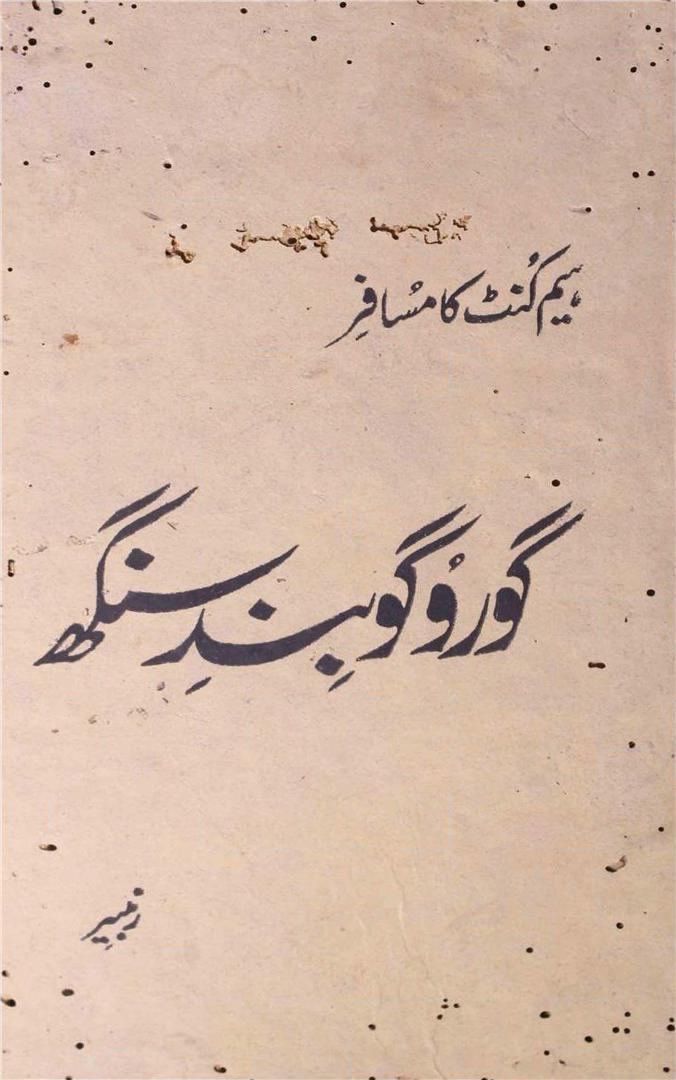 ہیم کُنٹ کا مسُافِر
گورُو گوبِندِ سنگھ